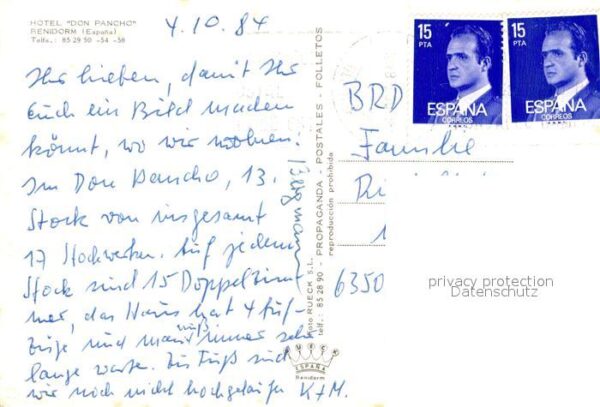 HOTEL "DON PANCHO"
BENIDORM (España)
Telfs.: 85 29 50 - 54 - 58
4.10.84
Ihr Lieben, damit Ihr
Euch ein Bild machen
könnt, wo wir wohnen.
Im Don Pancho, 13.
Stock von insgesamt
17 Stockwerken. Auf jedem
Stock sind 15 Doppelzim
mer, das Haus hat 4 Auf-
züge und man muß immer sehr
lange warten. Zu Fuß sind
wir noch nicht hochgelaufen K+M.
Bergmann
Foto RUECK S.L. - PROPAGANDA - POSTALES - FOLLETOS
telf.: 85 28 90 - reproducción prohibida
RUECK
ESPAÑA
Benidorm
15
PTA
ESPAÑA
CORREOS
15
PTA
ESPAÑA
CORREOS
BRD
Familie
6350
privacy protection
Datenschutz